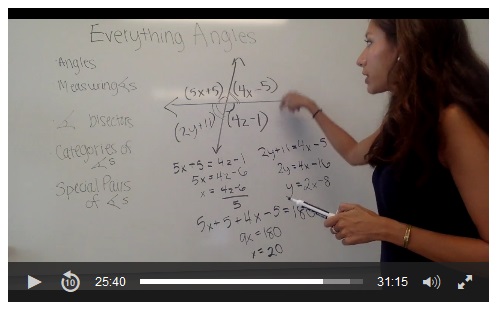 Everything Angles
Angles
Measuring ∠s
∠ bisectors
Categories of ∠s
Special Pairs of ∠s
(5x+5) (4x-5)
(2y+11) (4z-1)
5x+5=4z-1
5x=4z-6
x=4z-6
5
2y+11=4x-5
2y=4x-16
y=2x-8
5x+5+4x-5=180
9x=180
x=20
10
25:40
31:15